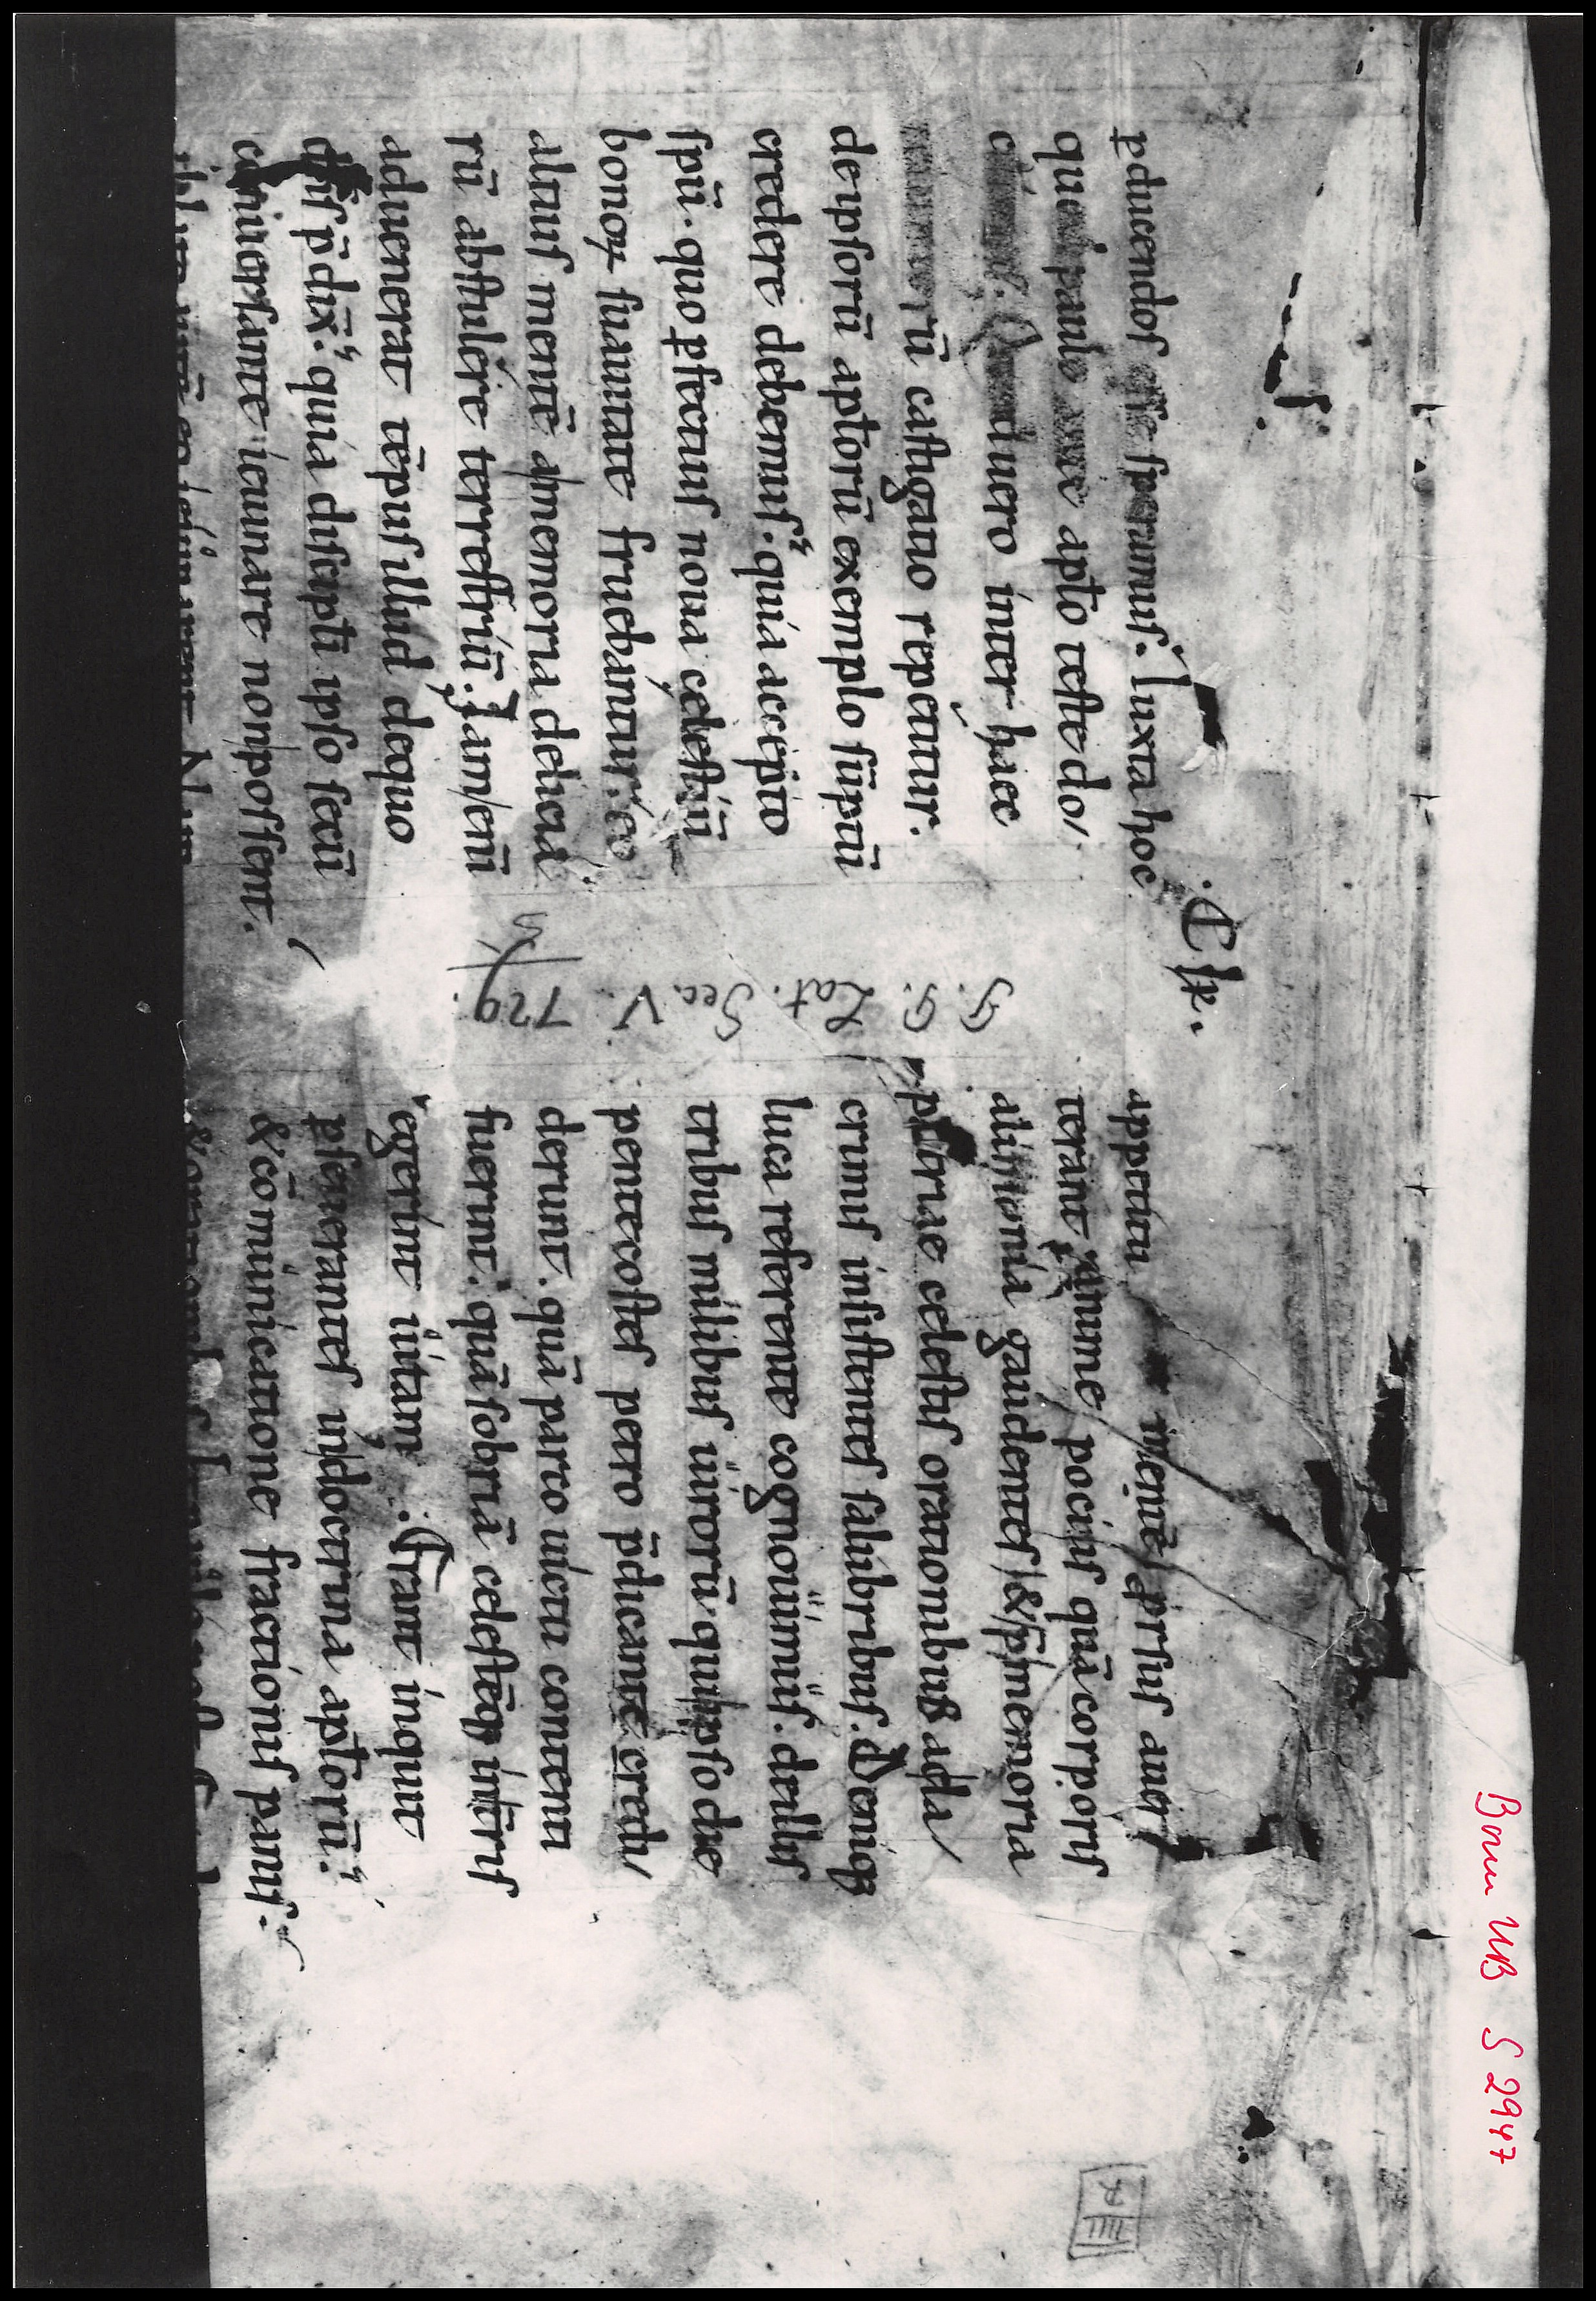 .C IX.
ꝑducendoſ eſſe ſperamuſ. Iuxta hoc
que paulo apłō teſte do/
uero inter haec
rū caſtigatio repetitur.
de ipſorū apłorū exemplo ſūptū
credere debemuſ. quia accepto
ſpū. quo ꝑfectiuſ noua celeſtiū
bonoꝝ ſuauitate fruebantur. eo
altiuſ mentē a memoria deuita
rū abſtulere terreſtriū. Iam enī
aduenerat tēpuſ illud de quo
dn̄ſ p̄dix̄. quia diſcipłi ipſo ſecū
conuerſante ieiunare non poſſent.
S. P. Lat. Sec. V. 729.
appetitu mentē prſuſ auer/
terant anime pociuſ quā corporiſ
alimonia gaudenteſ & ꝑ memoria
patriae celeſtiſ orationibuſ ac la/
crimiſ inſiſtenteſ ſalubribuſ. Deniq;
luca referente cognouimuſ. de illiſ
tribuſ milibuſ uirorū. qui ipſo die
pentecoſteſ petro p̄dicante credi/
derunt. quā parco uictu contenti
fuerunt. quā ſobriā celeſtēq; in t̄riſ
egerunt uitam. Erant inquit
ꝑſeueranteſ in doctrina apłorū.
& cōmunicatione fractioniſ paniſ.
Bonn UB S 2947